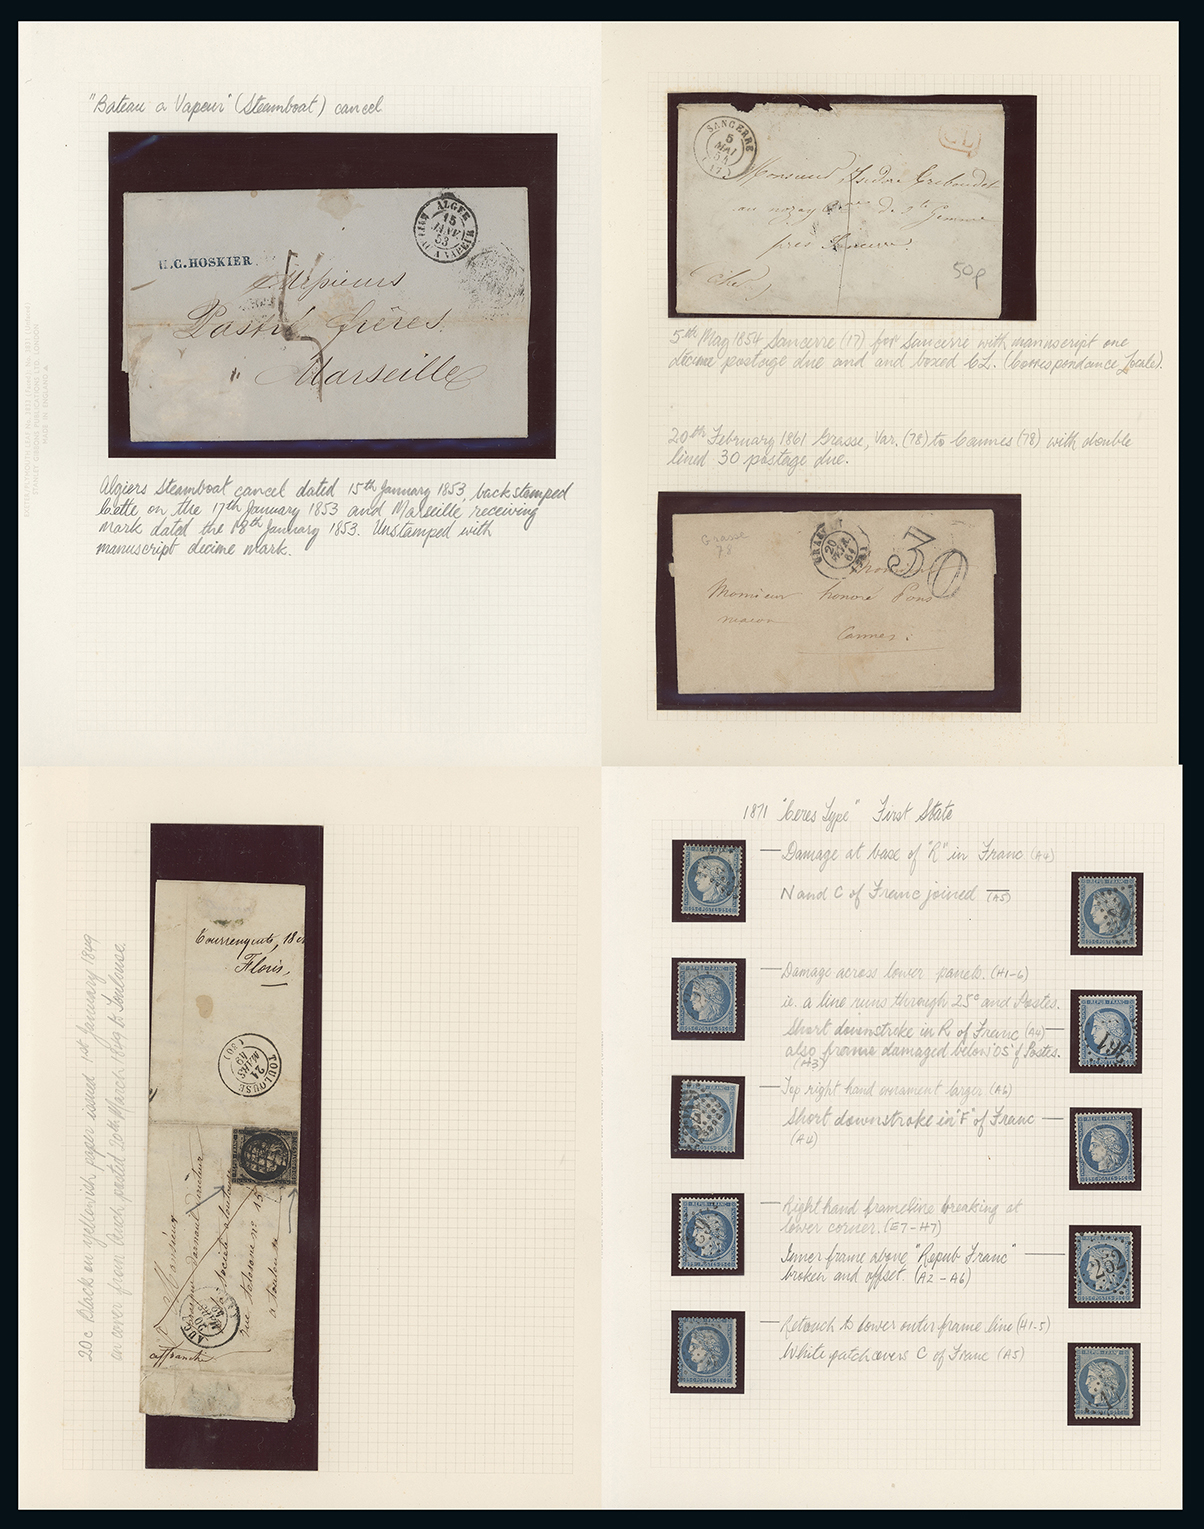 "Bateau a Vapeur" (Steamboat) cancel
ALGER
15
JANV
53
A VAPEUR
H.C. HOSKIER
Messieurs
Pastré frères
Marseille
Algiers Steamboat cancel dated 15th January 1853, backstamped
Cette on the 17th January 1853 and Marseille receiving
mark dated the 18th January 1853. Unstamped with
manuscript decime mark.
STANLEY GIBBONS PUBLICATIONS LTD. LONDON
MADE IN ENGLAND
SANCERRE
5
MAI
54
(17)
CL
Monsieur Isidore
de Ste Gemme
près Sancerre
Cher
50p
5th May 1854 Sancerre (17) for Sancerre with manuscript one
decime postage due and and boxed CL. (Correspondance Locale).
20th February 1861 Grasse, Var. (78) to Cannes (78) with double
lined 30 postage due.
Grasse
78
GRASSE
20
61
30
Monsieur honoré Pons
macon
Cannes.
20c Black on yellowish paper issued 1st January 1849
on cover from Auch posted 20th March 1849 to Toulouse.
Floris,
TOULOUSE
21
MARS
49
(30)
Monsieur
rue
n° 15
a toulouse
AUCH
20
MARS
49
affranchie
1871 "Ceres Type" First State
Damage at base of "R" in Franc (A4)
N and C of Franc joined (A5)
Damage across lower panels. (H1-6)
ie. a line runs through 25c and Postes.
Short downstroke in R of Franc (A4)
also frame damaged below 'OS' of Postes.
(H3)
Top right hand ornament larger (A6)
Short downstroke in "F" of Franc
(A4)
Right hand frameline breaking at
lower corner. (E7-H7)
Inner frame above "Repub Franc"
broken and offset. (A2-A6)
Retouch to lower outer frame line (H1-5)
White patch covers C of Franc (A5)
REPUB FRANC
25C POSTES 25C
262